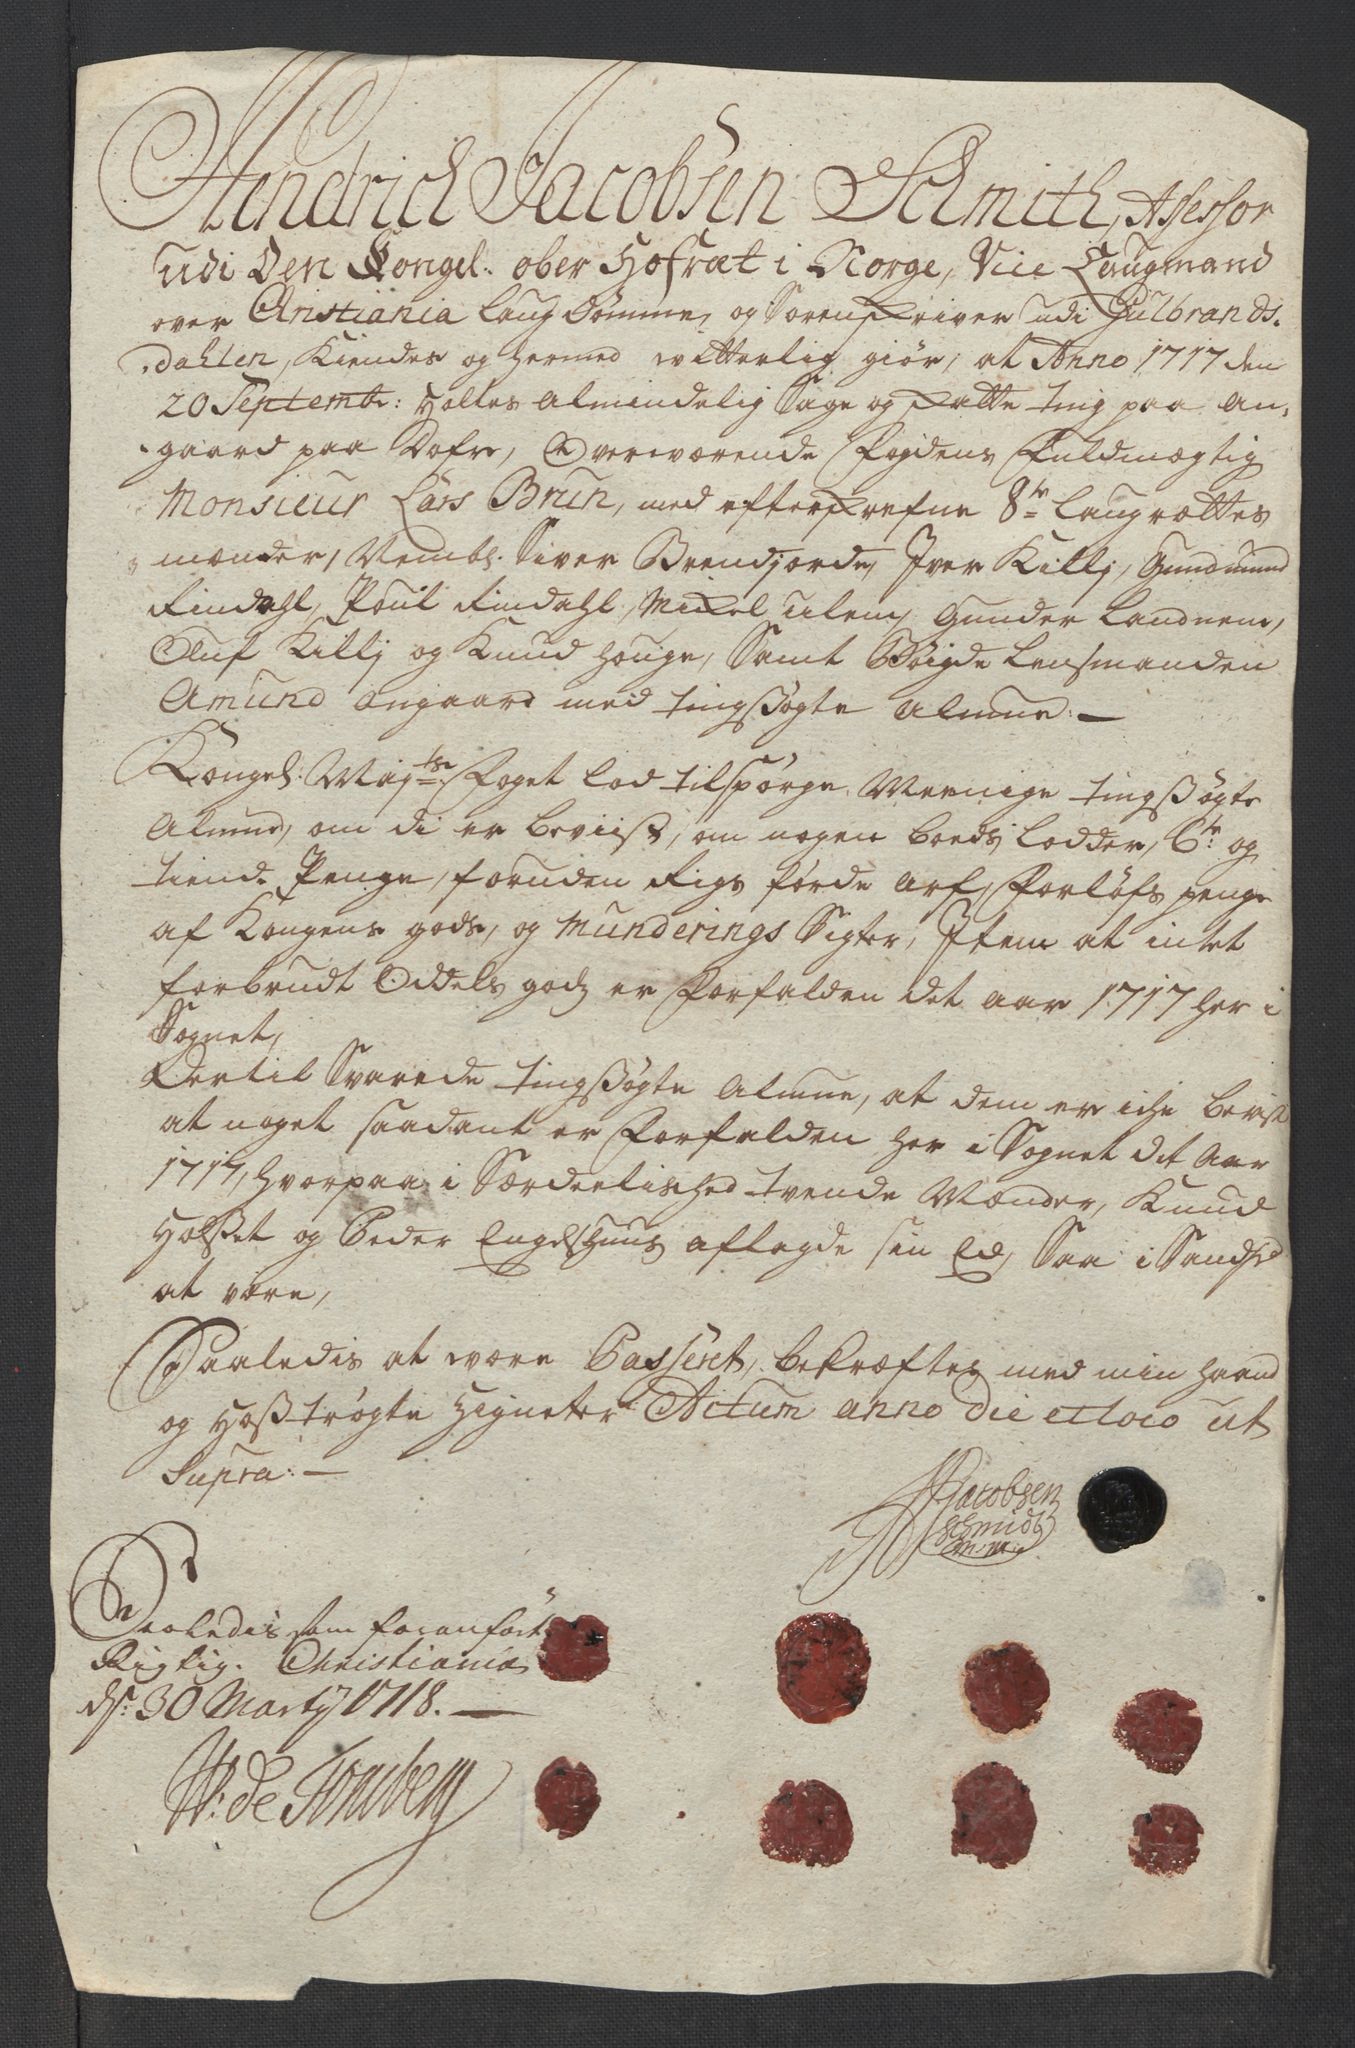 Hendrich Jacobsen Schmith, Assessor
udi Den Kongel: ober Hofræt i Norge, Vice Laugmand
over Christiania Laug Dømme, og Sorenskriver udi Gulbrands-
dahlen, Kiendes og hermed witterlig giør, at Anno 1717 den
20 Septembr: Holtes Almindelig Sage og skatte ting paa An-
gaard paa Dofre, Overværende Fogdens Fuldmægtig
Monsieur Lars Brun, med efterskrefne 8te Laugrættes
mænder, Nembl. Siver Brendjorde, Iver Killj, Gundmund
Rindahl, Poul Rindahl, Mickel Ulem, Gunder Landnem,
Oluf Killj og Knud Houge, Samt Bøigde Lensmanden
Amund Angaard med tingsøgte Almue. —
Kongel: Maj:ts Foget lod tilspørge Meenige tingsøgte
Almue, om di er beviist, om nogen boeds lodder, 6te og
tiende Penge, foruden Rigs førde arf, Forløfs penge
af Kongens gods, og Munderings Sigter, Item at intet
forbrudt Oddels godz er forfalden det aar 1717 her i
Sognet,
Dertil Svarede tingsøgte Almue, at dem er iche bevist
at noget saadant er forfalden her i Sognet dit Aar
1717, hvorpaa i Særdeelished tvende Mænder, Knud
Holset og Peder Engelshuus aflagde sin Eed, Saa i Sandhed
at være,
Saaledis at være Passeret, bekræftes med min haand
og hoß trøgte Zigneter Actum anno die et loco ut
Supra: —
HJacobsen
Schmidt
m. m.
Saaledis som foranført
Rigtig. Christiania
ds: 30 Martij 1718. —
W: de Tonsberg